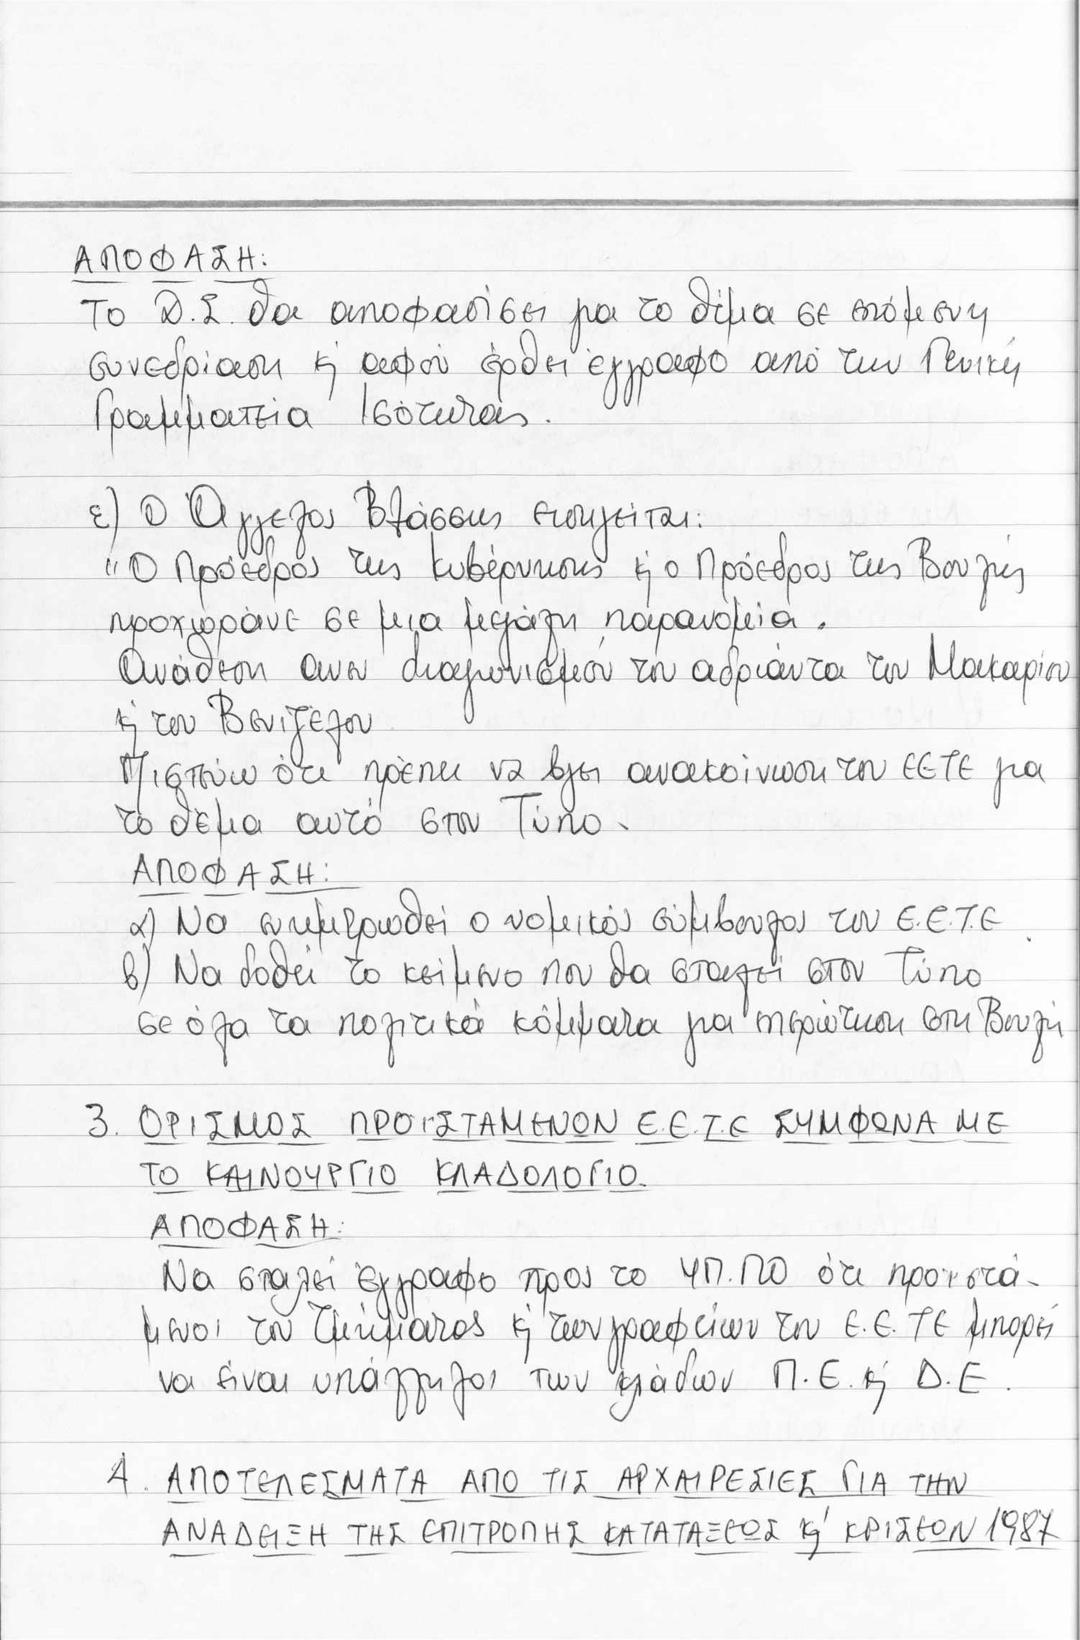 ΑΠΟΦΑΣΗ:
Το Δ.Σ. θα αποφασίσει για το θέμα σε επόμενη
συνεδρίαση κ' αφού έρθει έγγραφο από την Γενική
Γραμματεία Ισότητας.
ε) Ο Άγγελος Βλάσσης εισηγείται:
"Ο Πρόεδρος της κυβέρνησης κ' ο Πρόεδρος της Βουλής
προχωράνε σε μια μεγάλη παρανομία.
Ανάθεση άνευ διαγωνισμού του αδριάντα του Μακαρίου
κ' του Βενιζέλου
Πιστεύω ότι πρέπει να βγει ανακοίνωση του ΕΕΤΕ για
το θέμα αυτό στον Τύπο.
ΑΠΟΦΑΣΗ:
α) Να ενημερωθεί ο νομικός σύμβουλος του Ε.Ε.Τ.Ε.
β) Να δοθεί το κείμενο που θα σταλεί στον Τύπο
σε όλα τα πολιτικά κόμματα για επερώτηση στη Βουλή
3. ΟΡΙΣΜΟΣ ΠΡΟΪΣΤΑΜΕΝΩΝ Ε.Ε.Τ.Ε ΣΥΜΦΩΝΑ ΜΕ
ΤΟ ΚΑΙΝΟΥΡΓΙΟ ΚΛΑΔΟΛΟΓΙΟ.
ΑΠΟΦΑΣΗ:
Να σταλεί έγγραφο προς το ΥΠ.ΠΟ ότι προϊστά-
μενοι του Τμήματος κ' των γραφείων του Ε.Ε.ΤΕ μπορεί
να είναι υπάλληλοι των κλάδων Π.Ε. κ' Δ.Ε.
4. ΑΠΟΤΕΛΕΣΜΑΤΑ ΑΠΟ ΤΙΣ ΑΡΧΑΙΡΕΣΙΕΣ ΓΙΑ ΤΗΝ
ΑΝΑΔΕΙΞΗ ΤΗΣ ΕΠΙΤΡΟΠΗΣ ΚΑΤΑΤΑΞΕΩΣ κ' ΚΡΙΣΕΩΝ 1987